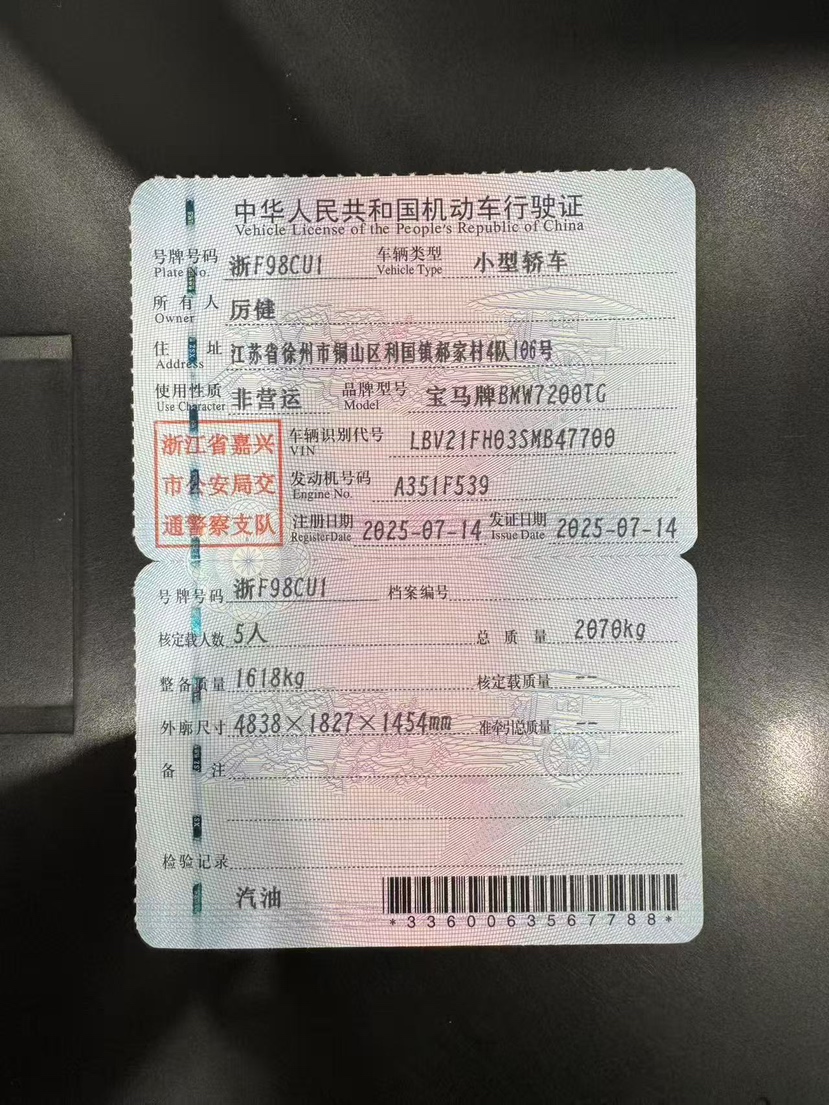 中华人民共和国机动车行驶证
Vehicle License of the People's Republic of China
号牌号码 浙F98CU1 车辆类型 小型轿车
Plate No. Vehicle Type
所有人 厉健
Owner
住址 江苏省徐州市铜山区利国镇郝家村4队106号
Address
使用性质 非营运 品牌型号 宝马牌BMW7200TG
Use Character Model
浙江省嘉兴
市公安局交
通警察支队
车辆识别代号 LBV21FH03SMB47700
VIN
发动机号码 A351F539
Engine No.
注册日期 2025-07-14 发证日期 2025-07-14
Register Date Issue Date
号牌号码 浙F98CU1 档案编号
核定载人数 5人 总质量 2070kg
整备质量 1618kg 核定载质量 --
外廓尺寸 4838×1827×1454mm 准牵引总质量 --
备注
检验记录
汽油
*3360063567788*